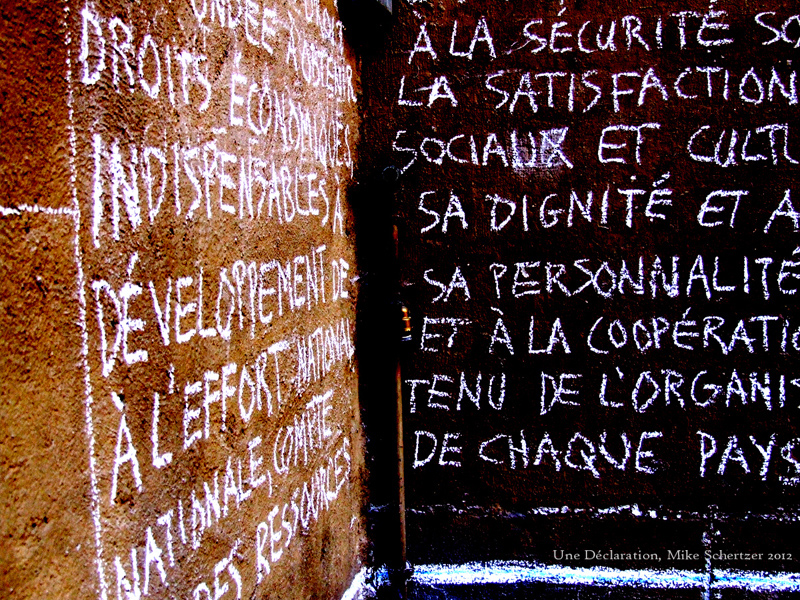 À LA SÉCURITÉ SO
ONDÉE À OBTENIR LA SATISFACTION
DROITS ÉCONOMIQUES, SOCIAUX ET CULTU
INDISPENSABLES À SA DIGNITÉ ET A
DÉVELOPPEMENT DE SA PERSONNALITÉ
À L'EFFORT NATIONAL ET À LA COOPÉRATIO
NATIONALE, COMPTE TENU DE L'ORGANIS
DES RESSOURCES DE CHAQUE PAYS
Une Déclaration, Mike Schertzer 2012